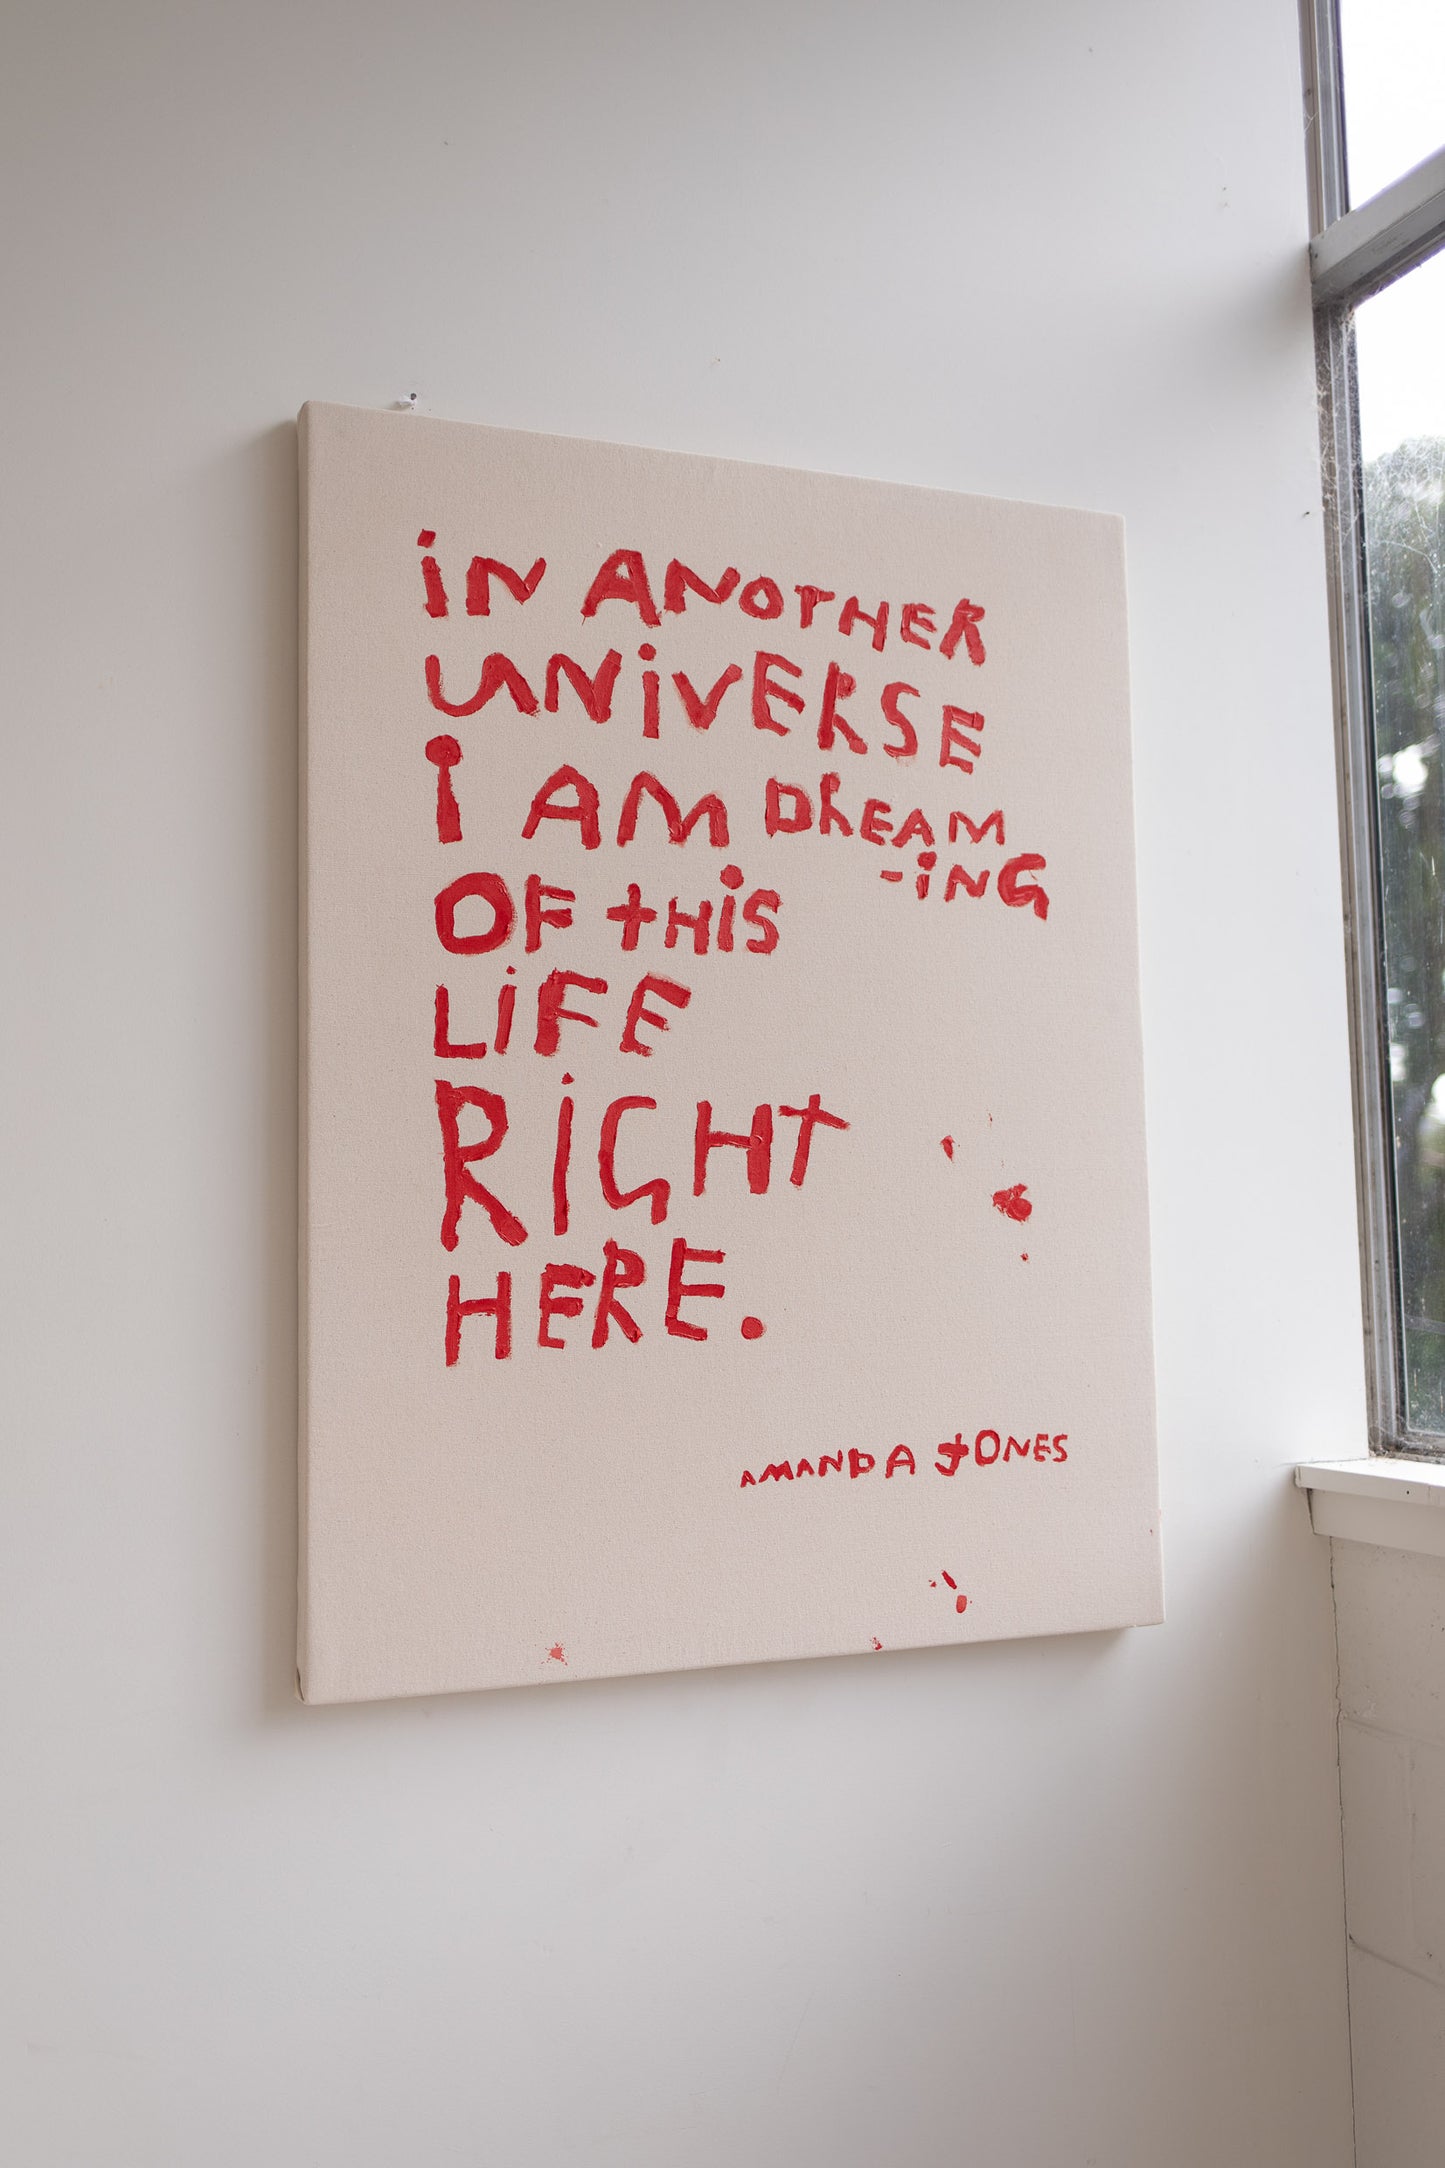 iN ANOTHER
UNiVERSE
I AM DREAM
-iNG
OF tHiS
LiFE
RiGHt
HERE.
AMANDA JONES